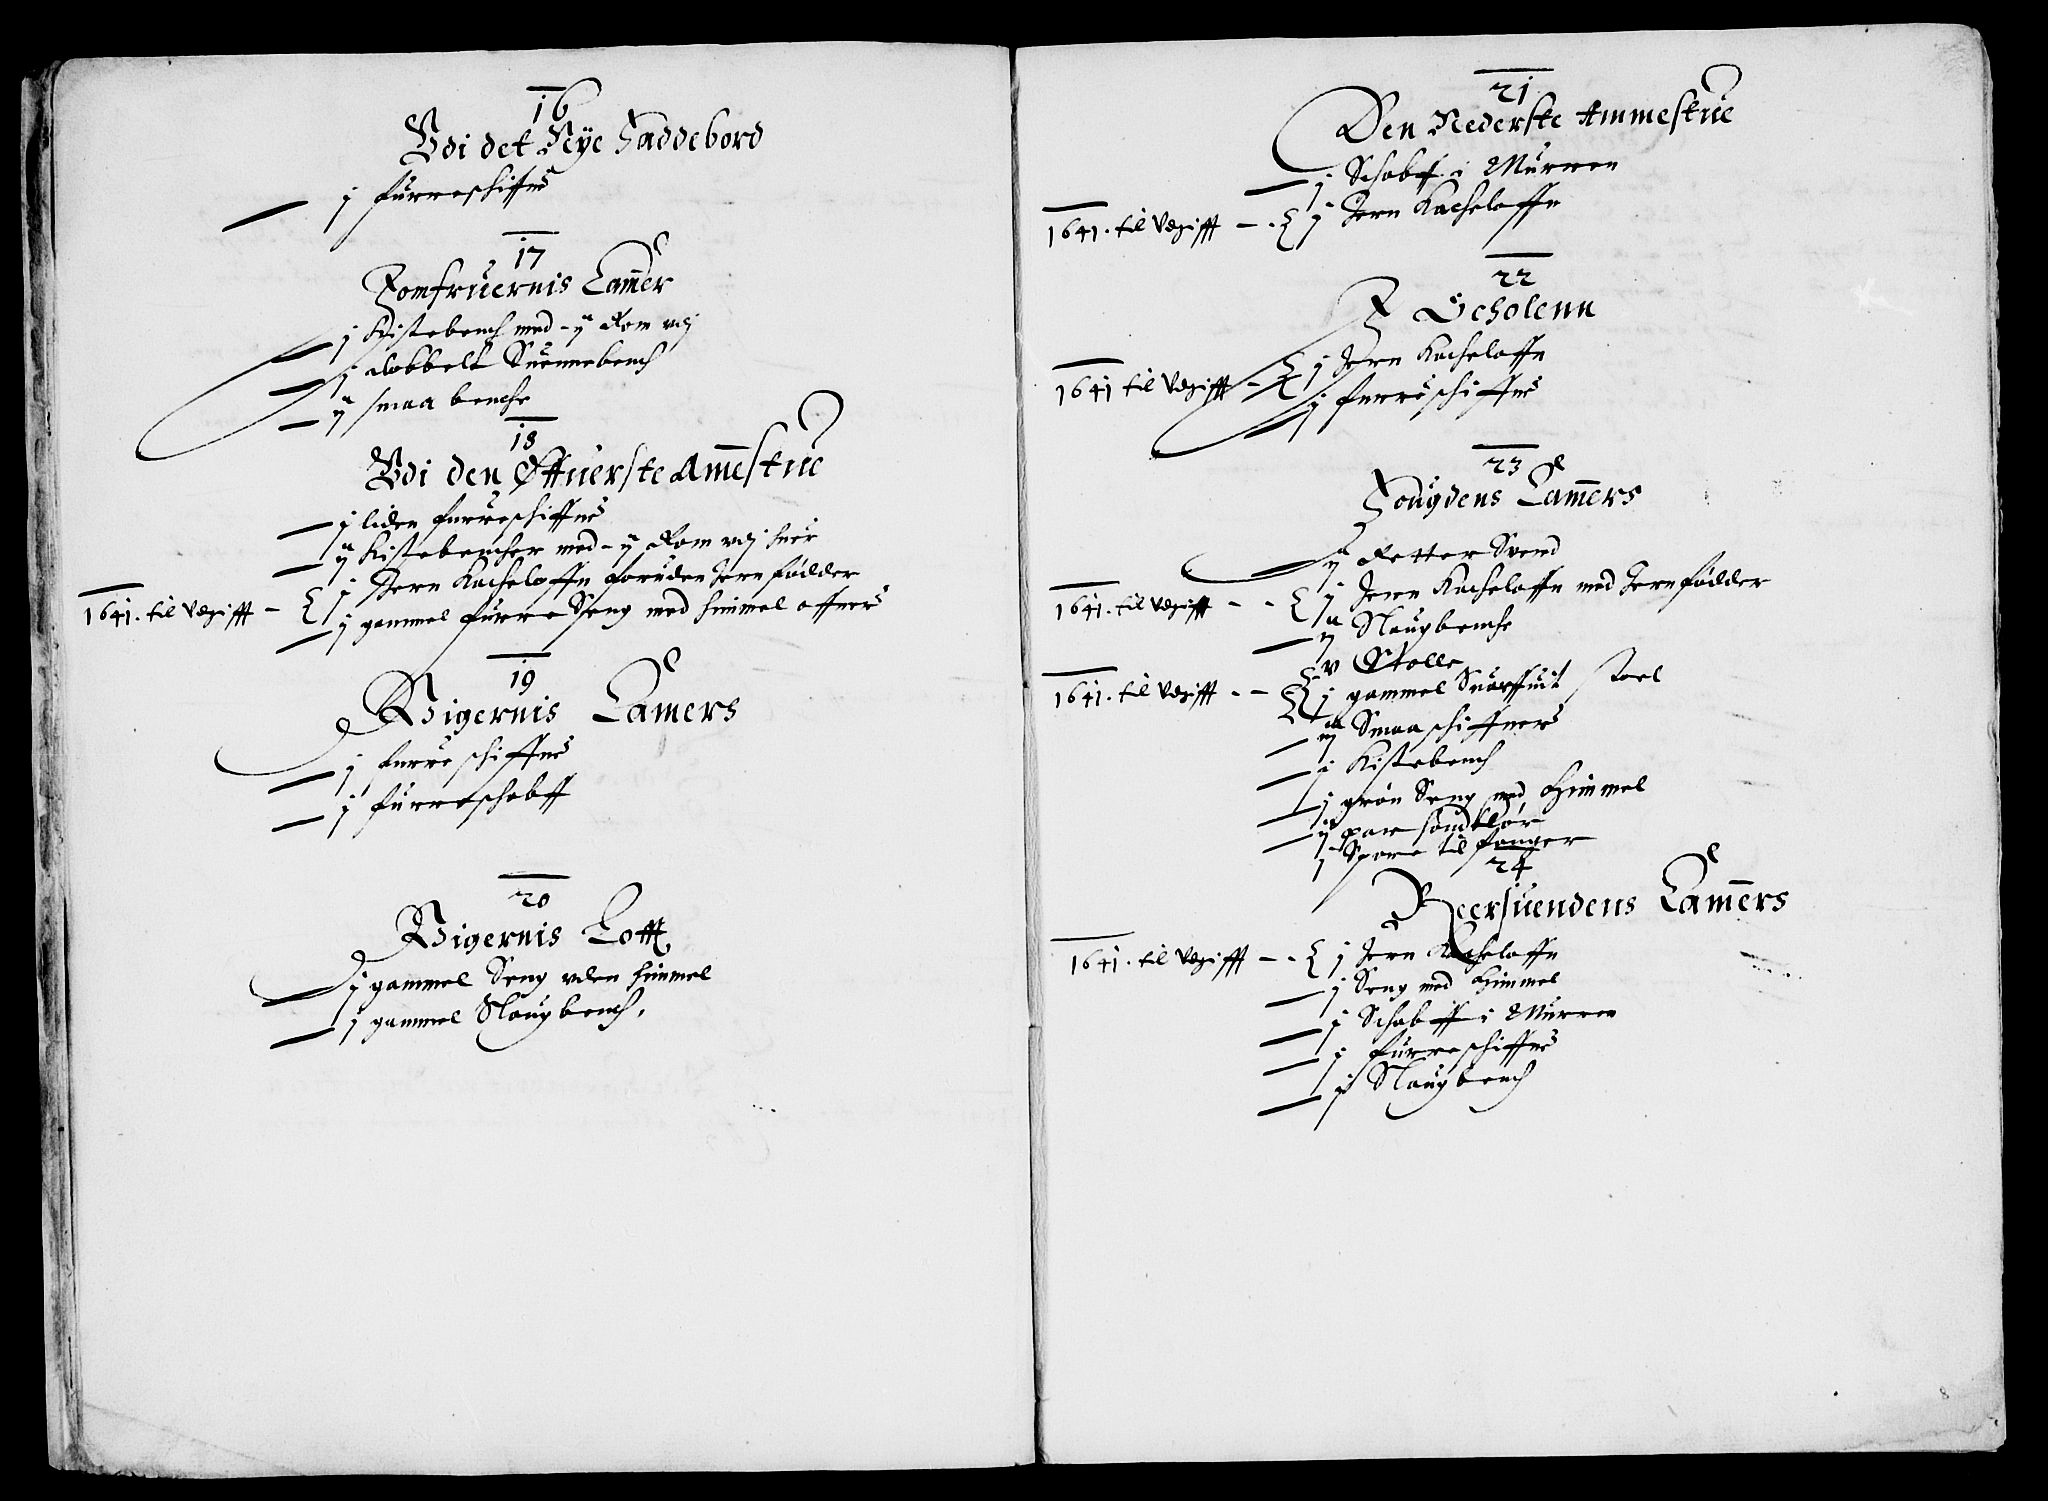 16
Vdi det Nye Faddebord
j furreschiffue
17
Jomfruernis Camer
j Kistebench med - ij Rom vdj
j dobbelt Suennebench
ij smaa benche
18
Vdi den Øffuerste Amestue
j liden furreschiffue
ij Kistebencher med - ij Rom vdj huer
1641. til Vdgifft - j Jern Kacheloffn foruden Jernfødder
j gammel furre Seng med himmel offuer
19
Pigernis Camers
j furre schiffue
j furreschabff
20
Pigernis Lofft
j gammel Seng uden himmel
j gammel Slaugbench.
21
Den Nederste Ammestue
j Schabff i Murren
1641. til Vdgifft - j Jern Kacheloffn
22
I Scholenn
1641 til Vdgifft - j Jern Kacheloffn
j furreschiffue
23
Fougdens Camers
ij Retter Sverd
1641. til Vdgifft - - j Jern Kacheloffn med Jernfødder
ij Slaugbenche
v Stolle
1641. til Vdgifft - - j gammel Suarffuit Stoel
iij Smaaschiffuer
i Kistebench
j grøn Seng med Himmel
ij par
j Spore til fanger
24
Reersuendens Camers
1641. til Vdgifft - - j Jern Kacheloffn
j Seng med Himmel
j Schabff i Murren
j furreschiffue
j Slaugbench
8